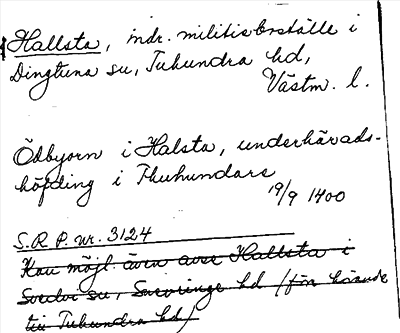 Hallsta, indr. militieboställe i
Dingtuna sn, Tuhundra hd,
Västm. l.
Ödbyorn i Halsta, underhärads-
höfding i Thuhundare
19/9 1400
S.R.P. nr. 3124
Kan möjl. även avse Hallsta i
Svedvi sn, Snevringe hd (för hörande
till Tuhundra hd)